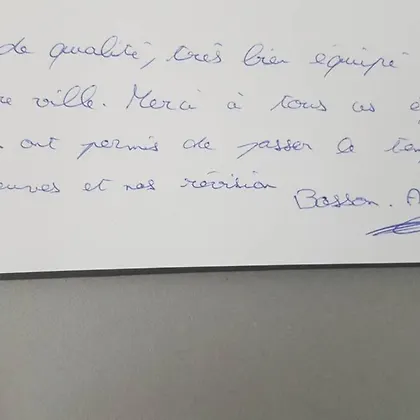 de qualité, très bien équipé
re ville. Merci à tous os
ont permis de passer le ten
euves et nos révision
Bosson. A